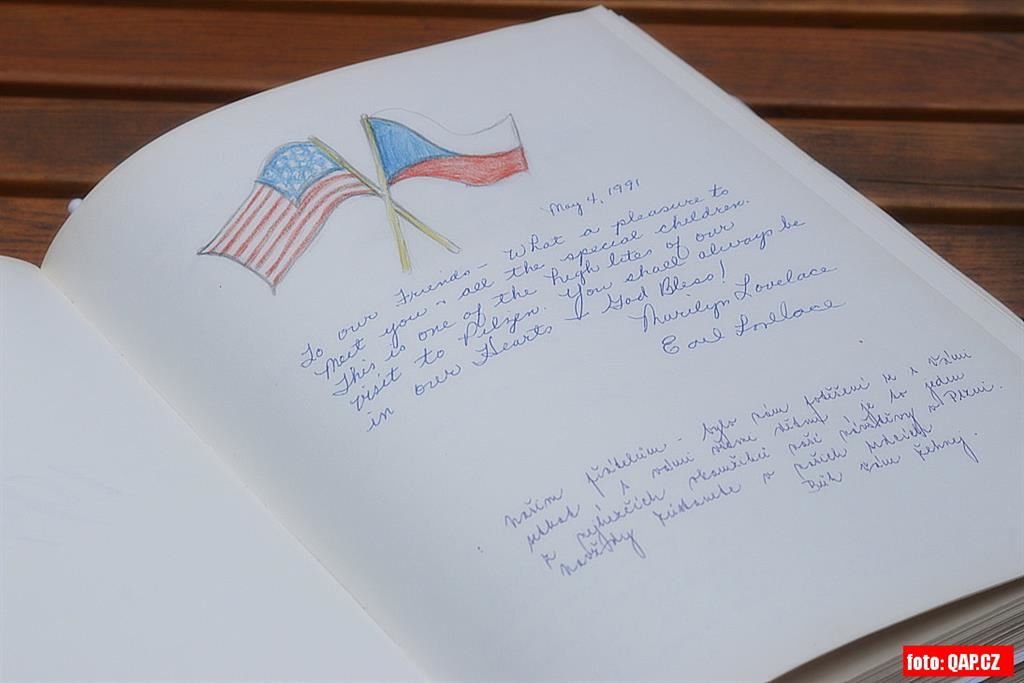 May 4, 1991
To our Friends - What a pleasure to
meet you & all the special children.
This is one of the high lites of our
visit to Pilzen. You shall always be
in our Hearts & God Bless!
Marilyn Lovelace
Earl Lovelace
Našim přátelům - bylo nám potěšení se s Vámi
setkat i s vašimi dětmi a je to jeden
z nejhezčích okamžiků naší návštěvy v Plzni.
Navždy zůstanete v našich srdcích
Bůh Vám žehnej.
foto: QAP.CZ